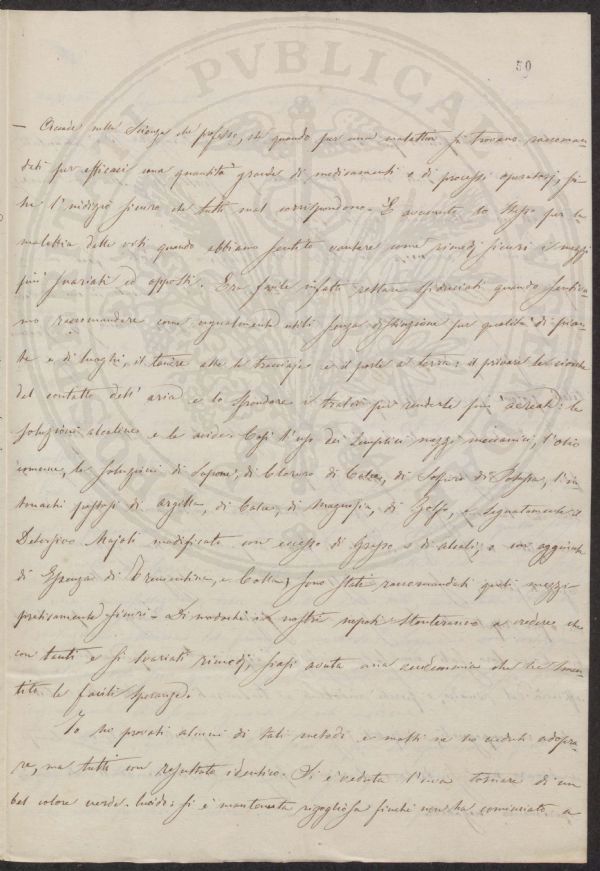 59
— Accade nella Scienza che professo, che quando per una malattia si trovano raccoman-
dati per efficaci una quantità grande di medicamenti e di processi operatorj, si
ha l'indizio sicuro che tutti mal corrispondono. È avvenuto lo stesso per la
malattia delle viti quando abbiamo sentito vantare come rimedj sicuri i mezzi
più svariati ed opposti. Era facile infatti restare sfiduciati quando sentiva-
mo raccomandare come egualmente utili senza distinzione per qualità di pian-
te e di luoghi, il tenere alte le e il porle a terra: il privare le ciocche
del contatto dell'aria e lo sfrondare i tralci per renderle più aereate: le
soluzioni alcaline e le acide. Così l'uso dei semplici mezzi meccanici, l'olio
comune, le soluzioni di Sapone, di Cloruro di Calce, di Solfuro di Potassa, l'in
tonachi pastosi di argilla, di Calce, di Magnesia, di Zolfo, e segnatamente il
Detersivo Majoli modificato con eccesso di Grasso o di alcali, o con aggiunta
di Essenza di Trementina, e Colla, sono stati raccomandati quali mezzi
praticamente sicuri. Di modochè i nostri nepoti stenteranno a credere che
con tanti e sì svariati rimedj, siasi avuta una che ha smen-
tite le faciti speranze.
Io ho provati alcuni di tali metodi e molti ne ho veduti adopra-
re, ma tutti con resultato identico. Si è veduta l'uva tornare di un
bel colore verde-lucido: si è mantenuta rigogliosa finchè non ha cominciato a